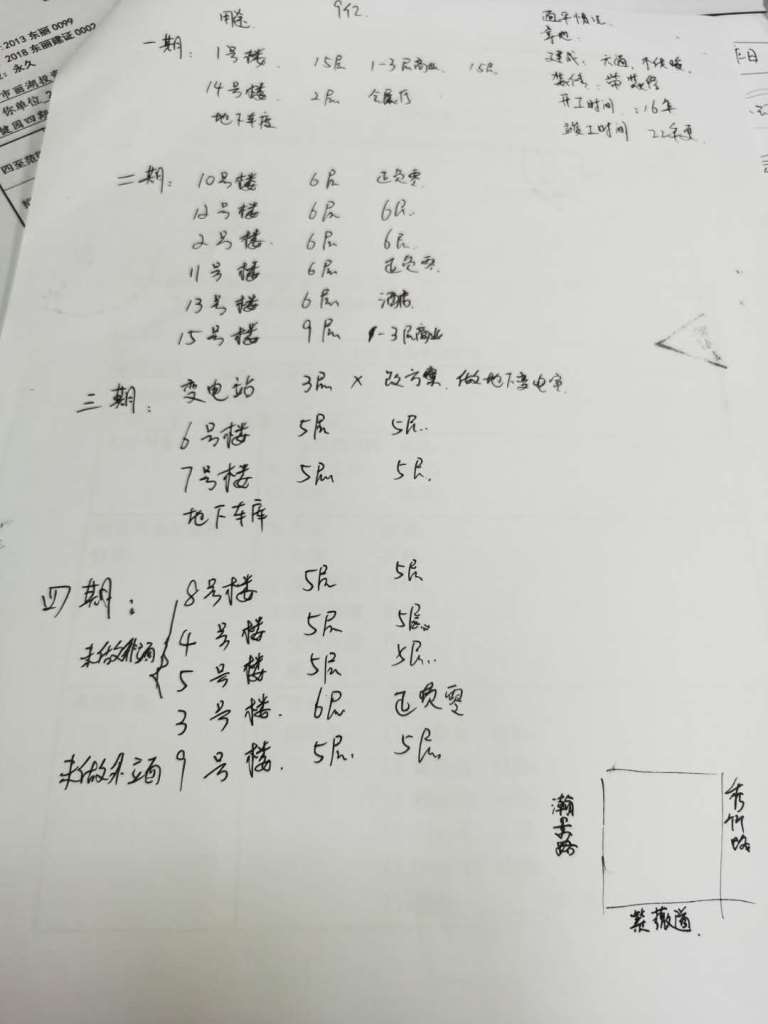 2013 东丽 0099
2018 东丽建证 0002
永久
市丽湖投
你单位
四至范
用途
942.
一期： 1号楼 15层 1-3层商业 15层
14号楼 2层 全展厅
地下车库
开工时间：16年
竣工时间 22年夏
二期： 10号楼 6层 正负零
12号楼 6层 6层
2号楼 6层 6层
11号楼 6层 正负零
13号楼 6层 酒店
15号楼 9层 1-3层商业
三期： 变电站 3层 × 改方案 做地下变电室
6号楼 5层 5层
7号楼 5层 5层
地下车库
四期： 8号楼 5层 5层
4号楼 5层 5层
5号楼 5层 5层
3号楼 6层 正负零
未做外立面 9号楼 5层 5层
瀚景路
秀竹路